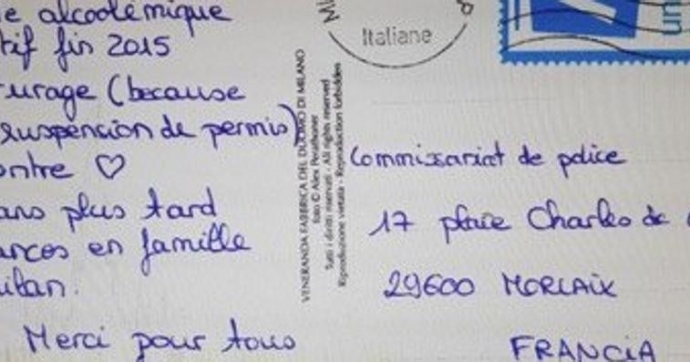 e alcoolémique
tif fin 2015
urage (because
suspension de permis)
ontre ♡
ans plus tard
ances en famille
ilan.
Merci pour tous
Italiane
VENERANDA FABBRICA DEL DUOMO DI MILANO
foto © Alex Perathoner
Tutti i diritti riservati - All rights reserved
Riproduzione vietata - Reproduction forbidden
Commissariat de police
17 place Charles de
29600 MORLAIX
FRANCIA